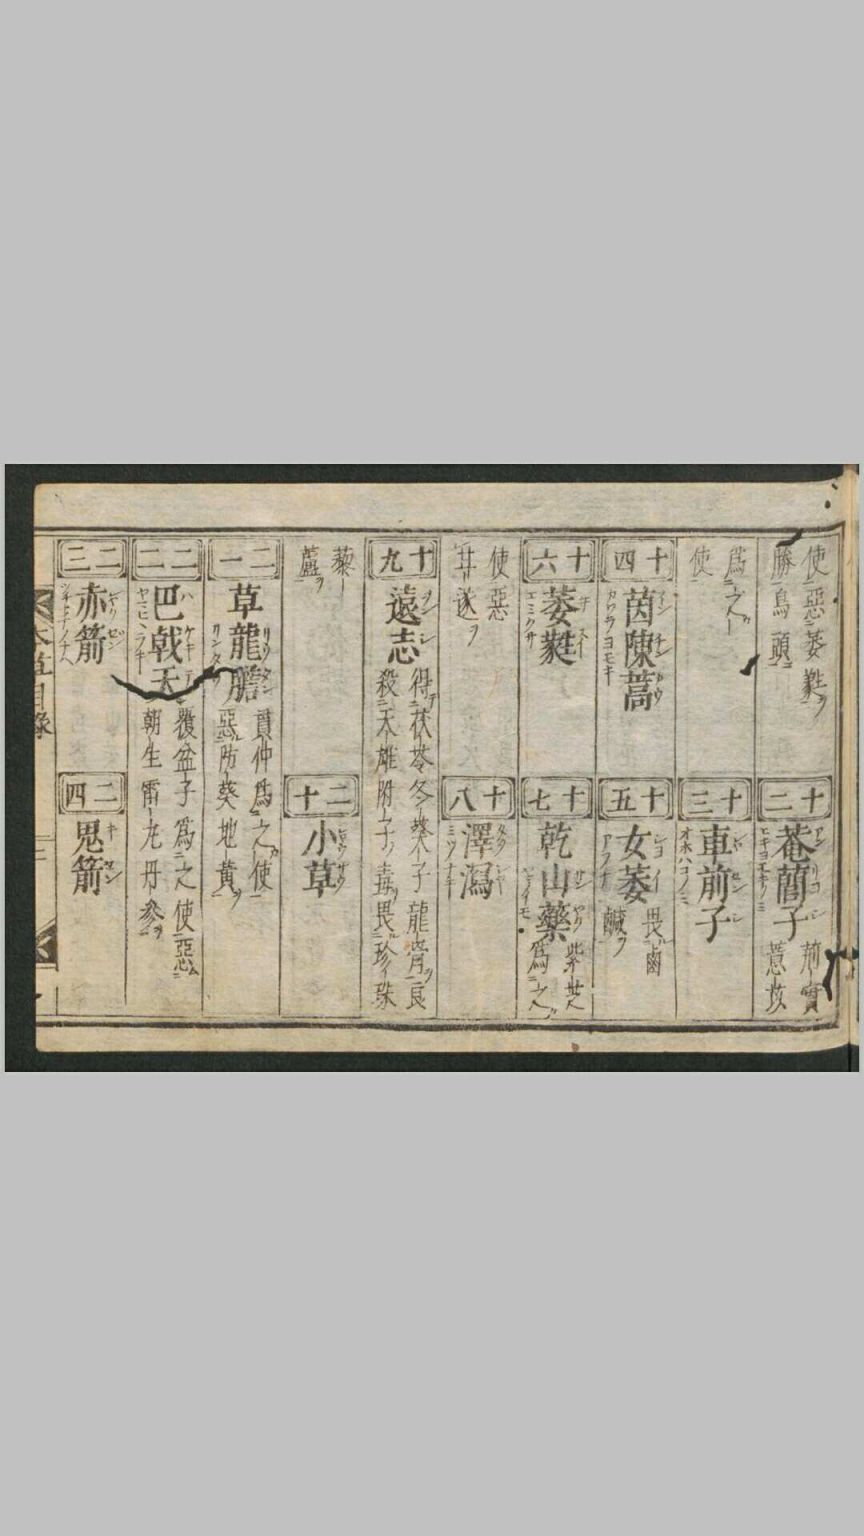 使惡萎蕤
勝烏頭
十二
菴䕡子
荊實
薏苡
爲之
使
十三
車前子
十四
茵陳蒿
カワラヨモキ
十五
女萎
畏鹵
鹹
十六
萎蕤
エミクサ
十七
乾山藥
紫芝
爲之
使惡
甘遂
十八
澤瀉
十九
遠志
得茯苓冬葵子龍骨良
殺天雄附子毒畏珍珠
藜
蘆
二十
小草
二一
草龍膽
貫仲爲之使
惡防葵地黃
二二
巴戟天
覆盆子爲之使惡
朝生雷丸丹參
二三
赤箭
二四
鬼箭
本草目錄